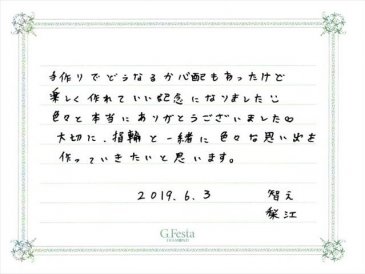 手作りでどうなるか心配もあったけど
楽しく作れていい記念になりました
色々と本当にありがとうございました
大切に、指輪と一緒に色々な思い出を
作っていきたいと思います。
2019.6.3 智え
梨江
G.Festa